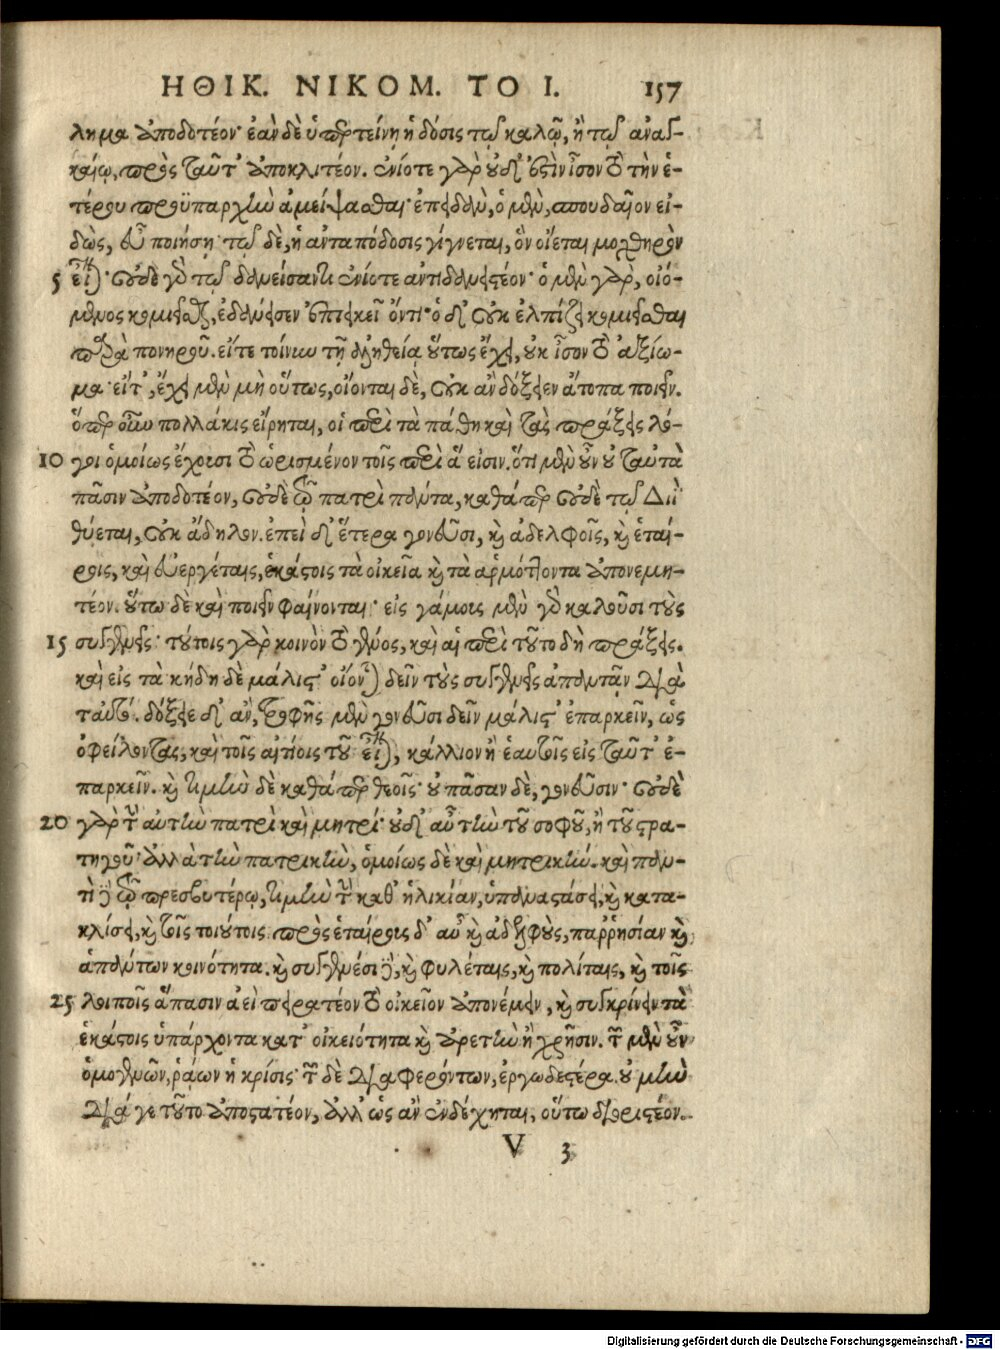 ΗΘΙΚ. ΝΙΚΟΜ. ΤΟ Ι. 157
λημα ἀποδοτέον· ἐὰν δὲ ὑπερτείνῃ ἡ δόσις τῷ καλῷ, ἢ τῷ ἀναγ-
καίῳ, πρὸς ταῦτ' ἀποκλιτέον. ἐνίοτε γὰρ οὐδ' ἐστὶν ἶσον τὸ τὴν ἑ-
τέρου προϋπαρχὴν ἀμείψασθαι· ἐπειδὰν, ὁ μὲν, σπουδαῖον εἰ-
δὼς, εὖ ποιήσῃ· τῷ δὲ, ἡ ἀνταπόδοσις γίγνεται, ὃν οἴεται μοχθηρὸν
5 εἶναι· οὐδὲ γὰρ τῷ δανείσαντι ἐνίοτε ἀντιδανειστέον· ὁ μὲν γὰρ, οἰό-
μενος κομιεῖσθαι, ἐδάνεισεν ἐπιεικεῖ ὄντι· ὁ δ' οὐκ ἐλπίζει κομιεῖσθαι
παρὰ πονηροῦ. εἴτε τοίνυν τῇ ἀληθείᾳ οὕτως ἔχει, οὐκ ἶσον τὸ ἀξίω-
μα· εἴτ', ἔχει μὲν μὴ οὕτως, οἴονται δὲ, οὐκ ἂν δόξειεν ἄτοπα ποιεῖν.
ὅπερ οὖν πολλάκις εἴρηται, οἱ περὶ τὰ πάθη καὶ τὰς πράξεις λό-
10 γοι ὁμοίως ἔχουσι τὸ ὡρισμένον τοῖς περὶ ἅ εἰσιν. ὅτι μὲν οὖν οὐ ταὐτὰ
πᾶσιν ἀποδοτέον, οὐδὲ τῷ πατρὶ πάντα, καθάπερ οὐδὲ τῷ Διῒ
θύεται, οὐκ ἄδηλον. ἐπεὶ δ' ἕτερα γονεῦσι, καὶ ἀδελφοῖς, καὶ ἑταί-
ροις, καὶ εὐεργέταις, ἑκάστοις τὰ οἰκεῖα καὶ τὰ ἁρμόττοντα ἀπονεμη-
τέον. οὕτω δὲ καὶ ποιεῖν φαίνονται· εἰς γάμους μὲν γὰρ καλοῦσι τοὺς
15 συγγενεῖς· τούτοις γὰρ κοινὸν τὸ γένος, καὶ αἱ περὶ τοῦτο δὴ πράξεις.
καὶ εἰς τὰ κήδη δὲ μάλιστ' οἴονται δεῖν τοὺς συγγενεῖς ἀπαντᾶν διὰ
ταὐτό. δόξειε δ' ἂν, τροφῆς μὲν γονεῦσι δεῖν μάλιστ' ἐπαρκεῖν, ὡς
ὀφείλοντας, καὶ τοῖς αἰτίοις τοῦ εἶναι, κάλλιον ἢ ἑαυτοῖς εἰς ταῦτ' ἐ-
παρκεῖν. καὶ τιμὴν δὲ καθάπερ θεοῖς· οὐ πᾶσαν δὲ, γονεῦσιν· οὐδὲ
20 γὰρ τὴν αὐτὴν πατρὶ καὶ μητρί· οὐδ' αὖ τὴν τοῦ σοφοῦ, ἢ τοῦ στρα-
τηγοῦ· ἀλλὰ τὴν πατρικὴν, ὁμοίως δὲ καὶ μητρικήν. καὶ παν-
τὶ δὲ τῷ πρεσβυτέρῳ, τιμὴν τὴν καθ' ἡλικίαν, ὑπαναστάσει, καὶ κατα-
κλίσει, καὶ τοῖς τοιούτοις. πρὸς ἑταίρους δ' αὖ καὶ ἀδελφοὺς, παῤῥησίαν καὶ
ἁπάντων κοινότητα. καὶ συγγενέσι δὲ, καὶ φυλέταις, καὶ πολίταις, καὶ τοῖς
25 λοιποῖς ἅπασιν ἀεὶ πειρατέον τὸ οἰκεῖον ἀπονέμειν, καὶ συγκρίνειν τὰ
ἑκάστοις ὑπάρχοντα κατ' οἰκειότητα καὶ ἀρετὴν ἢ χρῆσιν. τῶν μὲν οὖν
ὁμογενῶν, ῥάων ἡ κρίσις· τῶν δὲ διαφερόντων, ἐργωδεστέρα. οὐ μὴν
διά γε τοῦτο ἀποστατέον, ἀλλ' ὡς ἂν ἐνδέχηται, οὕτω διοριστέον.
V 3
Digitalisierung gefördert durch die Deutsche Forschungsgemeinschaft - DFG